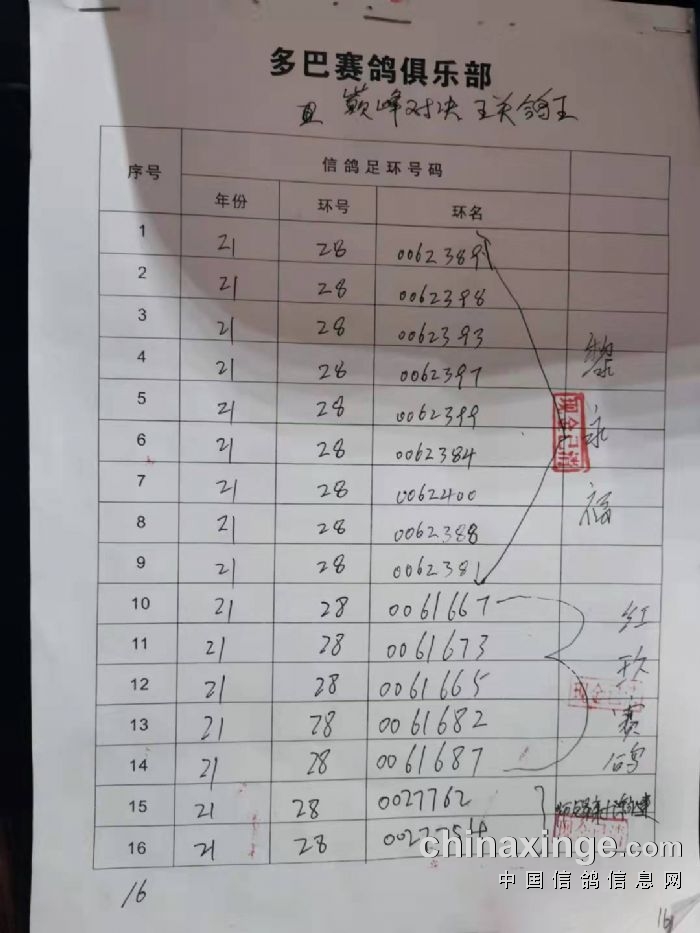 多巴赛鸽俱乐部
巅峰对决 王关鸽王
序号 信鸽足环号码
年份 环号 环名
1 21 28 0062389
2 21 28 0062398
3 21 28 0062393
4 21 28 0062397
5 21 28 0062399
6 21 28 0062384
7 21 28 0062400
8 21 28 0062388
9 21 28 0062381
黎永福
10 21 28 0061667
11 21 28 0061673
12 21 28 0061665
13 21 28 0061682
14 21 28 0061687
红玖赛鸽
15 21 28 0027762
16 21 28 0027754
现金已清
chinaxinge.com
中国信鸽信息网
16
16